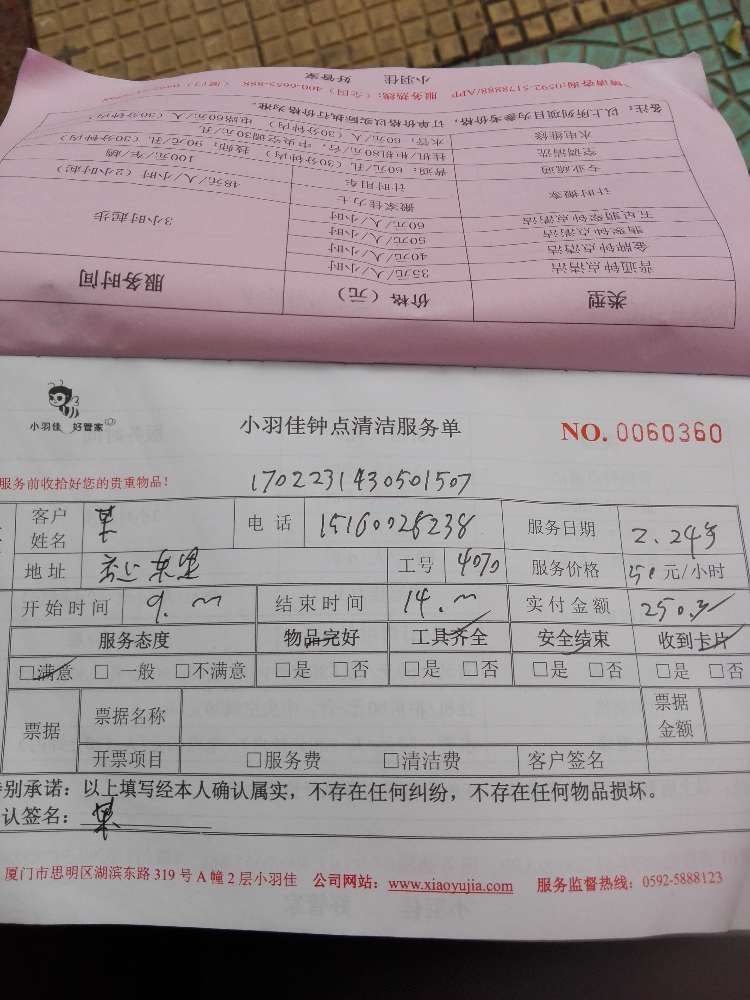 请咨询:0592-5178888/APP 服务热线:(全国)400-0653-888
小羽佳 好管家
备注:以上所列项目为参考价格,订单价格以实际执行价格为准。
水电维修 水管:60元/人(30分钟内) 电路60元/人(30分钟内)
空调清洗 挂机/柜机80元/台,中央空调30元/孔
专业疏通 普通:60元/孔(30分钟内) 技师:90元/孔(30分钟内)
计时搬家 计时用车 100元/车/趟
搬家佳力士 48元/人/小时(2小时起)
五星钟点清洁 60元/人/小时
翡翠钟点清洁 50元/人/小时
金牌钟点清洁 40元/人/小时
普通钟点清洁 35元/人/小时 3小时起步
类型 价格(元) 服务时间
小羽佳 好管家
小羽佳钟点清洁服务单
NO. 0060360
服务前收拾好您的贵重物品!
1702231430501507
客户姓名 电话 15160028238 服务日期 2.24
地址 工号 4070 服务价格 元/小时
开始时间 9. 结束时间 14. 实付金额 250
服务态度 物品完好 工具齐全 安全结束 收到卡片
□满意 □一般 □不满意 □是 □否 □是 □否 □是 □否 □是 □否
票据 票据名称 票据金额
开票项目 □服务费 □清洁费 客户签名
别承诺:以上填写经本人确认属实,不存在任何纠纷,不存在任何物品损坏。
认签名:
厦门市思明区湖滨东路319号A幢2层小羽佳 公司网站:www.xiaoyujia.com 服务监督热线:0592-5888123